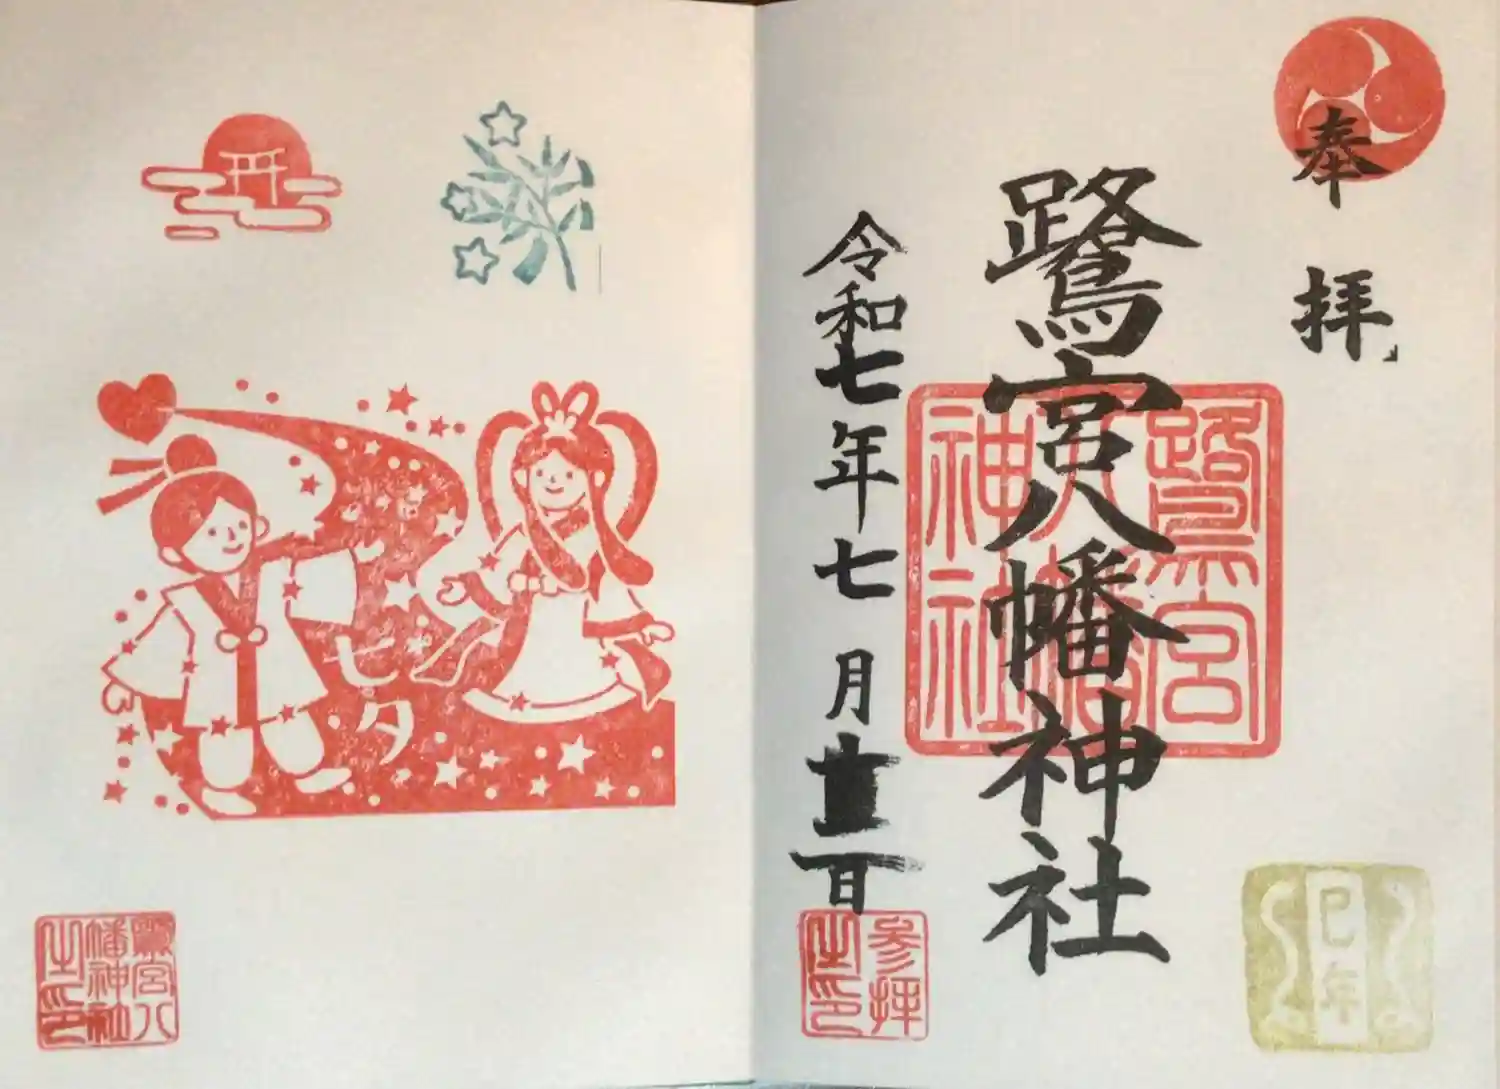 奉拝
鷺宮八幡神社
鷺宮
八幡
神社
令和七年七月 日
参拝
之印
巳年
七夕
鷺宮八
幡神社
之印